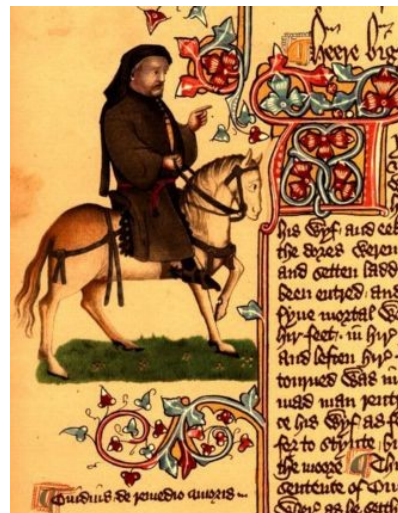 Heere big
his Wyf and eek
the dores weren
and setten ladd
been entred and
fyue mortal Wo
hir feet in hir
And leften hir
tourned was in
mad man rent
ce his Wyf as f
for to stynte
the moore
sentence of Oui
Wher as he seith
Ouidius de remedio amoris